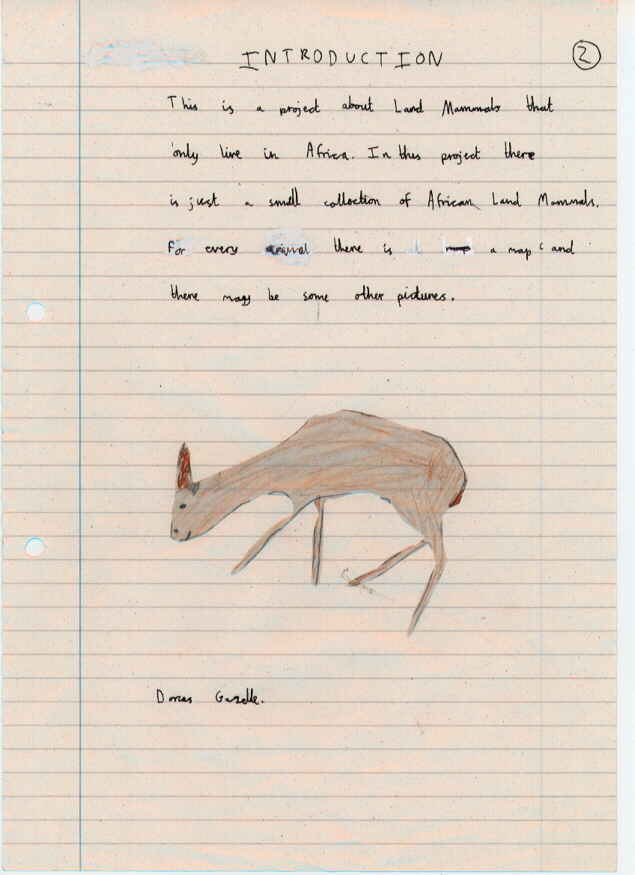 INTRODUCTION
2
This is a project about Land Mammals that
only live in Africa. In this project there
is just a small collection of African Land Mammals.
For every animal there is a map and
there may be some other pictures.
Dorcas Gazelle.